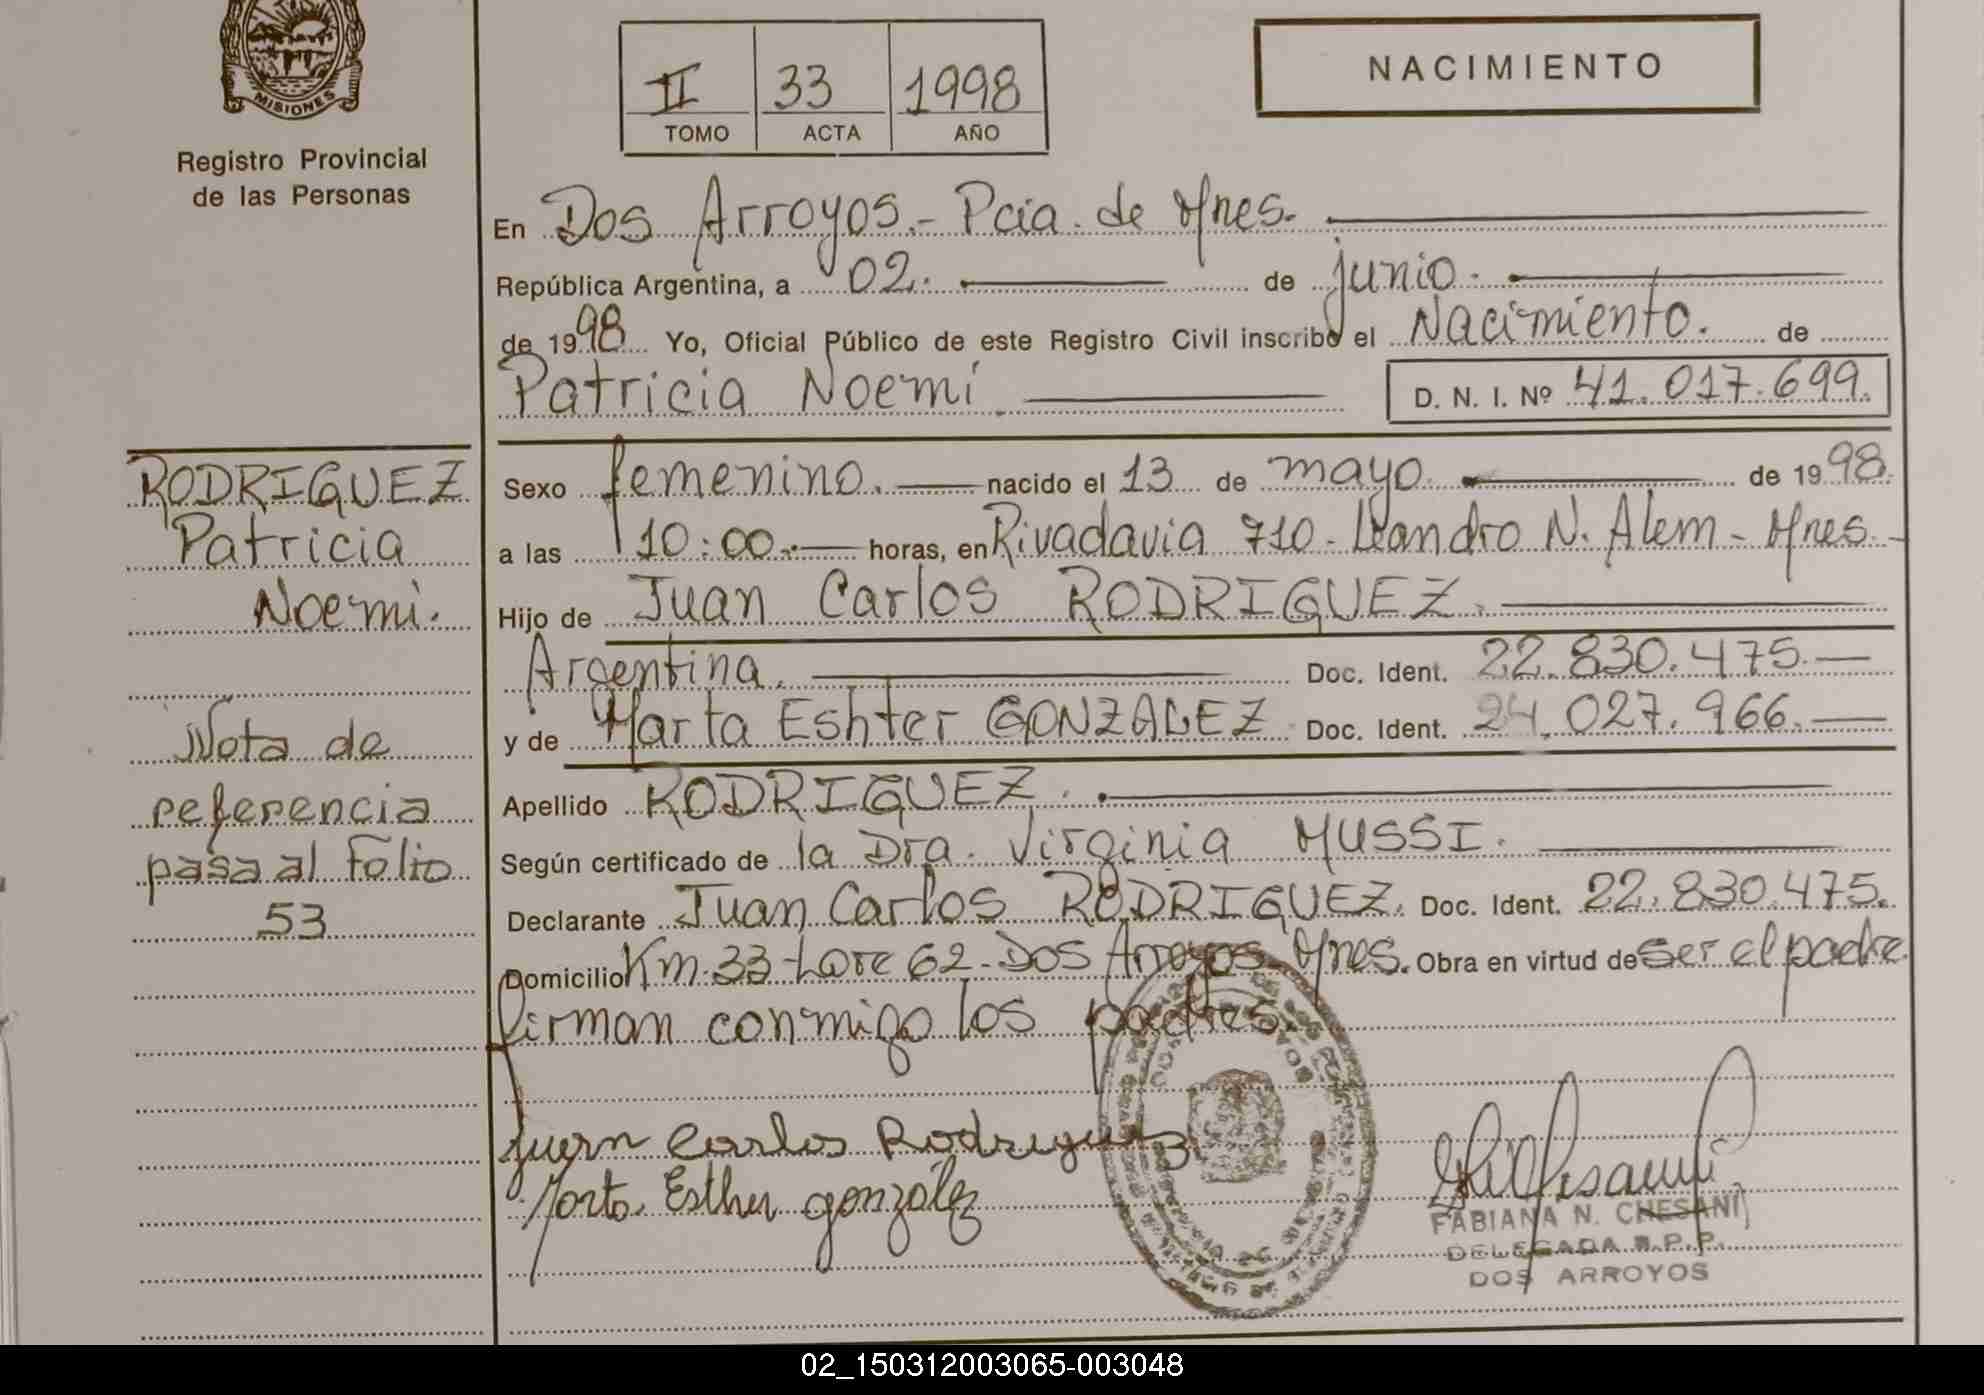 MISIONES
Registro Provincial
de las Personas
II 33 1998
TOMO ACTA AÑO
NACIMIENTO
En Dos Arroyos.- Pcia. de Mnes.
República Argentina, a 02. de junio.
de 1998 Yo, Oficial Público de este Registro Civil inscribo el Nacimiento. de
Patricia Noemí D. N. I. Nº 41.017.699.
RODRIGUEZ
Patricia
Noemi.
Nota de
referencia
pasa al Folio
53
Sexo femenino. nacido el 13 de mayo. de 1998.
a las 10:00.- horas, en Rivadavia 710 - Leandro N. Alem - Mnes.-
Hijo de Juan Carlos RODRIGUEZ.
Argentina. Doc. Ident. 22.830.475.-
y de Marta Eshter GONZALEZ Doc. Ident. 24.027.966.-
Apellido RODRIGUEZ.
Según certificado de la Dra. Virginia MUSSI.
Declarante Juan Carlos RODRIGUEZ. Doc. Ident. 22.830.475.
Domicilio Km. 33 - Lote 62 - Dos Arroyos - Mnes. Obra en virtud de ser el padre
firman conmigo los padres.
Juan Carlos Rodriguez
Marta Esther gonzález
FABIANA N. CHESANI
DELEGADA R.P.P.
DOS ARROYOS
02_150312003065-003048